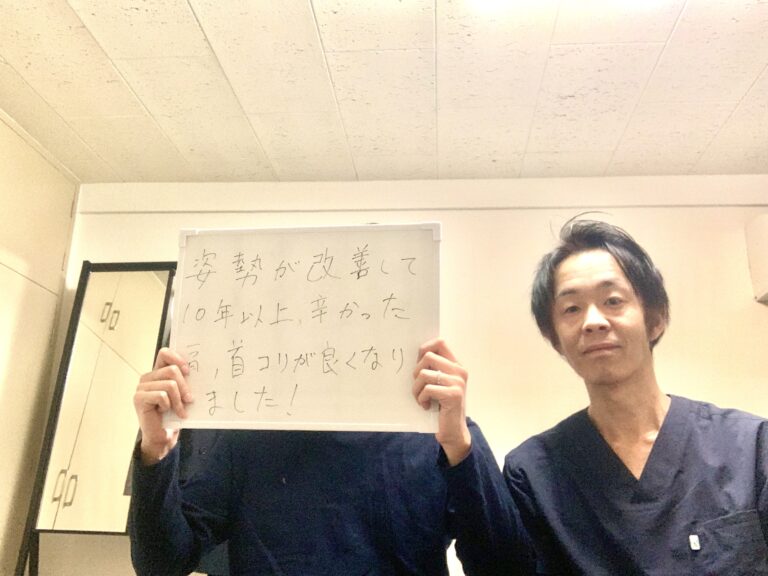 姿勢が改善して
10年以上、辛かった
肩、首コリが良くなり
ました!